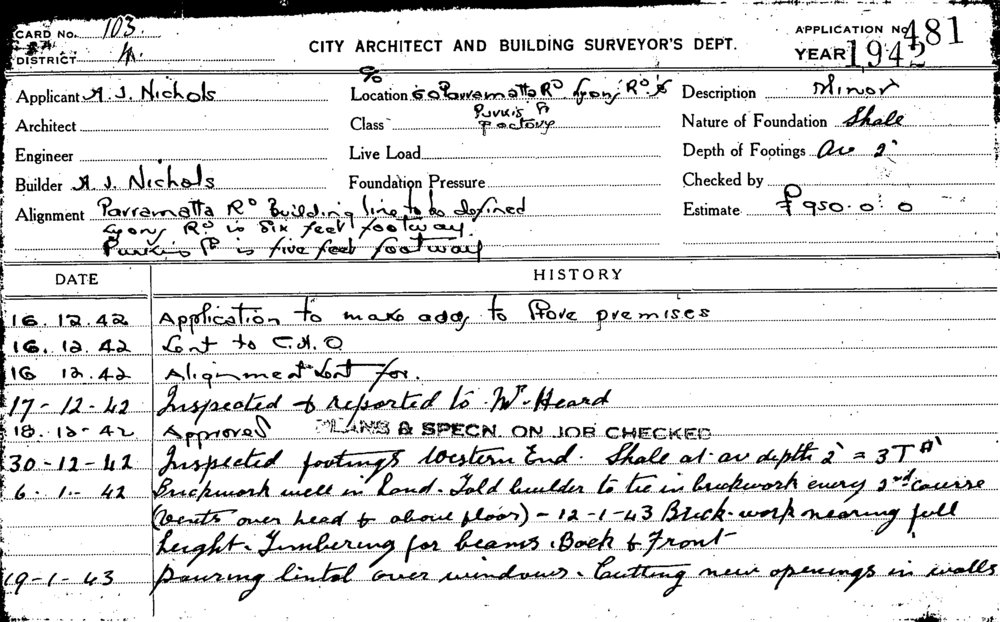 CARD No. 103.
DISTRICT A.
CITY ARCHITECT AND BUILDING SURVEYOR'S DEPT.
APPLICATION No 481
YEAR 1942
Applicant A. J. Nichols
Location Parramatta Rd Lyons Rd &
Purkis Pl
Description Minor
Architect
Class Factory
Nature of Foundation Shale
Engineer
Live Load
Depth of Footings Av 2'
Builder A. J. Nichols
Foundation Pressure
Checked by
Alignment Parramatta Rd Building line to be defined
Lyons Rd is six feet footway.
Purkis Pl is five feet footway
Estimate £950. 0. 0
DATE HISTORY
16. 12. 42 Application to make adds to Store premises
16. 12. 42 Sent to C.H.O
16 12. 42 Alignment Sent for.
17-12-42 Inspected & reported to Mr Heard
18. 12-42 Approved PLANS & SPECN. ON JOB CHECKED
30-12-42 Inspected footings Western End. Shale at av depth 2' = 3T
6. 1. 42 Brickwork well in hand. Told builder to tie in brickwork every 2nd course
(vents over head & above floor) - 12-1-43 Brick-work nearing full
height. Timbering for beams. Back & Front
19-1-43 pouring lintol over windows. Cutting new openings in walls